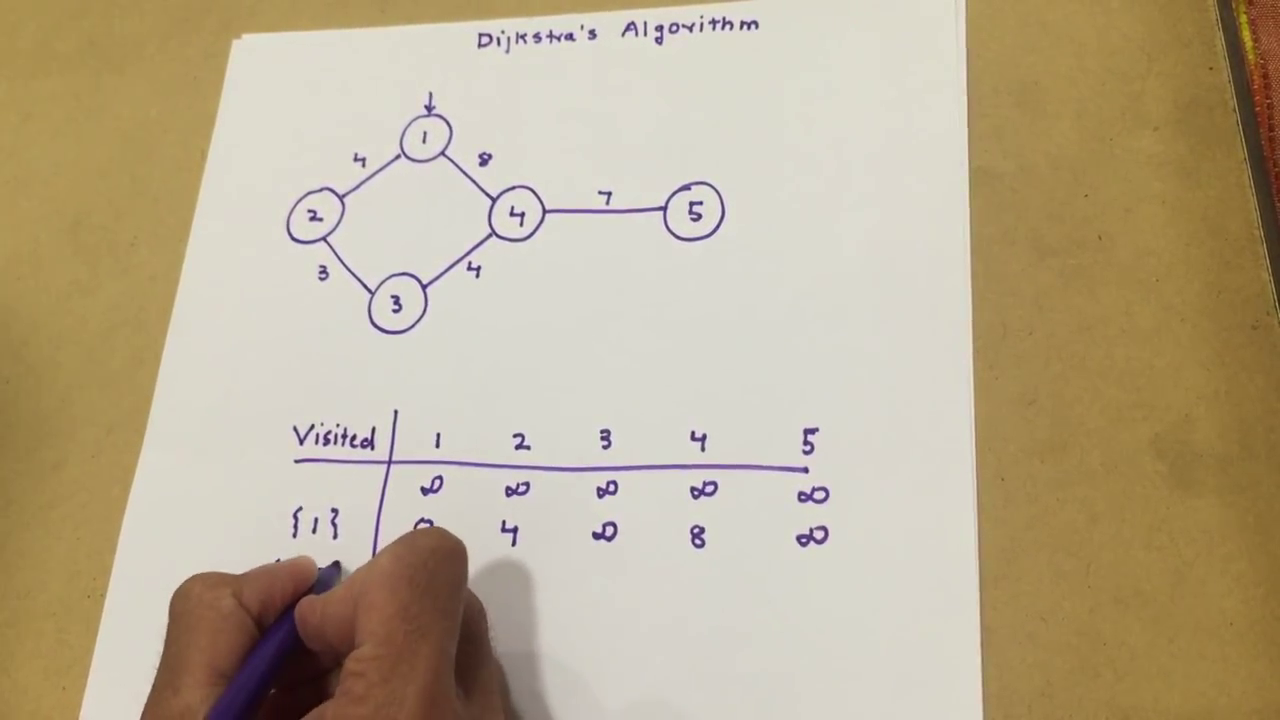 Dijkstra's Algorithm
1
4 8
2 4 7 5
3 4
3
Visited 1 2 3 4 5
∞ ∞ ∞ ∞ ∞
{1} 4 ∞ 8 ∞